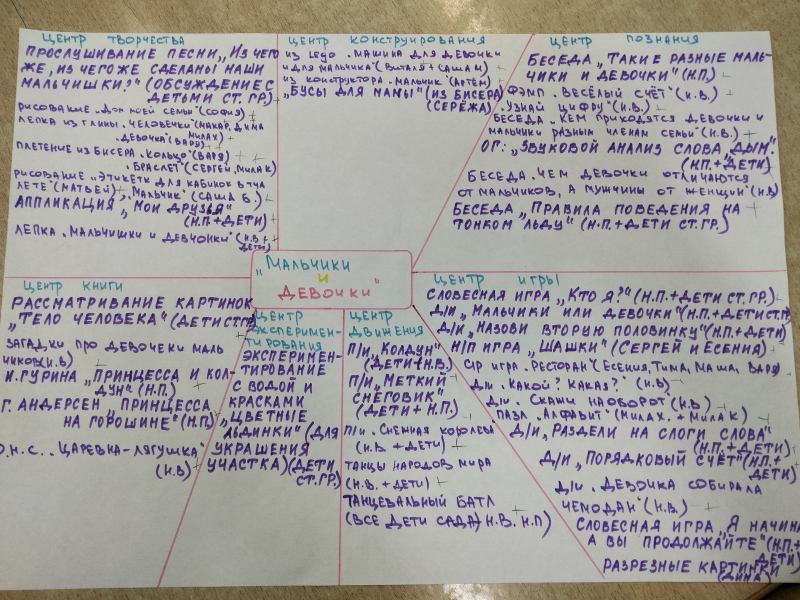 ЦЕНТР ТВОРЧЕСТВА
ПРОСЛУШИВАНИЕ ПЕСНИ „ИЗ ЧЕГО
ЖЕ, ИЗ ЧЕГО ЖЕ СДЕЛАНЫ НАШИ
МАЛЬЧИШКИ?" (ОБСУЖДЕНИЕ С
ДЕТЬМИ СТ. ГР.)
РИСОВАНИЕ „ДОМ МОЕЙ СЕМЬИ" (СОФИЯ)
ЛЕПКА ИЗ ГЛИНЫ „ЧЕЛОВЕЧКИ" (МАКАР, ДИМА
МИЛАК)
„ДЕВОЧКА" (ВАРЯ)
ПЛЕТЕНИЕ ИЗ БИСЕРА „КОЛЬЦО" (ВАРЯ)
„БРАСЛЕТ" (СЕРГЕЙ, МИЛАК)
РИСОВАНИЕ „ЭТИКЕТКИ ДЛЯ КАБИНОК В ТУА
ЛЕТЕ" (МАТВЕЙ), „МАЛЬЧИК" (САША Б.)
АППЛИКАЦИЯ „МОИ ДРУЗЬЯ"
(Н.П+ДЕТИ)
ЛЕПКА „МАЛЬЧИШКИ И ДЕВЧОНКИ" (Н.В +
ДЕТИ)
ЦЕНТР КОНСТРУИРОВАНИЯ
ИЗ LEGO „МАШИНА ДЛЯ ДЕВОЧКИ
И ДЛЯ МАЛЬЧИКА" (ВИТАЛЯ + САША И)
ИЗ КОНСТРУКТОРА „МАЛЬЧИК" (АРТЁМ)
„БУСЫ ДЛЯ МАМЫ" (ИЗ БИСЕРА)
(СЕРЁЖА)
ЦЕНТР ПОЗНАНИЯ
БЕСЕДА „ТАКИЕ РАЗНЫЕ МАЛЬ-
ЧИКИ И ДЕВОЧКИ" (Н.П.)
ФЭМП „ВЕСЁЛЫЙ СЧЁТ" (Н.В.)
„УЗНАЙ ЦИФРУ" (Н.В.)
БЕСЕДА „КЕМ ПРИХОДЯТСЯ ДЕВОЧКИ И
МАЛЬЧИКИ РАЗНЫМ ЧЛЕНАМ СЕМЬИ" (Н.В.)
ОГ: „ЗВУКОВОЙ АНАЛИЗ СЛОВА „ДЫМ"
(Н.П.+ДЕТИ)
БЕСЕДА „ЧЕМ ДЕВОЧКИ ОТЛИЧАЮТСЯ
ОТ МАЛЬЧИКОВ, А МУЖЧИНЫ ОТ ЖЕНЩИН" (Н.В)
БЕСЕДА „ПРАВИЛА ПОВЕДЕНИЯ НА
ТОНКОМ ЛЬДУ" (Н.П.+ДЕТИ СТ.ГР.)
„МАЛЬЧИКИ
И
ДЕВОЧКИ"
ЦЕНТР КНИГИ
РАССМАТРИВАНИЕ КАРТИНОК
„ТЕЛО ЧЕЛОВЕКА" (ДЕТИ СТ.ГР)
ЗАГАДКИ ПРО ДЕВОЧЕК И МАЛЬ
ЧИКОВ (Н.В)
И. ГУРИНА „ПРИНЦЕССА И КОЛ-
ДУН" (Н.П.)
Г. АНДЕРСЕН „ПРИНЦЕССА
НА ГОРОШИНЕ" (Н.П)
Р.Н.С. „ЦАРЕВНА-ЛЯГУШКА"
(Н.В)
ЦЕНТР
ЭКСПЕРИМЕН-
ТИРОВАНИЯ
ЭКСПЕРИМЕН-
ТИРОВАНИЕ
С ВОДОЙ И
КРАСКАМИ
„ЦВЕТНЫЕ
ЛЬДИНКИ" (ДЛЯ
УКРАШЕНИЯ
УЧАСТКА) (ДЕТИ
СТ.ГР.)
ЦЕНТР
ДВИЖЕНИЯ
П/И „КОЛДУН"
(ДЕТИ+Н.В.)
П/И „МЕТКИЙ
СНЕГОВИК"
(ДЕТИ + Н.П.)
П/И „СНЕЖНАЯ КОРОЛЕВА"
(Н.В. +ДЕТИ)
ТАНЦЫ НАРОДОВ МИРА
(Н.В. +ДЕТИ)
ТАНЦЕВАЛЬНЫЙ БАТЛ
(ВСЕ ДЕТИ САДА+Н.В. Н.П)
ЦЕНТР ИГРЫ
СЛОВЕСНАЯ ИГРА „КТО Я?" (Н.П.+ДЕТИ СТ.ГР.)
Д/И „МАЛЬЧИКИ ИЛИ ДЕВОЧКИ" (Н.П+ДЕТИ СТ.ГР)
Д/И „НАЗОВИ ВТОРУЮ ПОЛОВИНКУ" (Н.П.+ДЕТИ)
Н/П ИГРА „ШАШКИ" (СЕРГЕЙ И ЕСЕНИЯ)
С/Р ИГРА „РЕСТОРАН" (ЕСЕНИЯ, ТИМА, МАША, ВАРЯ)
Д/И „КАКОЙ? КАКАЯ?" (Н.В)
Д/И „СКАЖИ НАОБОРОТ" (Н.В)
ПАЗЛ „АЛФАВИТ" (МИЛАХ. + МИЛАК)
Д/И „РАЗДЕЛИ НА СЛОГИ СЛОВА"
(Н.П.+ДЕТИ)
Д/И „ПОРЯДКОВЫЙ СЧЁТ" (Н.П.+
ДЕТИ)
Д/И „ДЕВОЧКА СОБИРАЛА
ЧЕМОДАН" (Н.В.)
СЛОВЕСНАЯ ИГРА „Я НАЧИНА
А ВЫ ПРОДОЛЖАЙТЕ" (Н.П.+
ДЕТИ)
РАЗРЕЗНЫЕ КАРТИНКИ
(ДИНА)